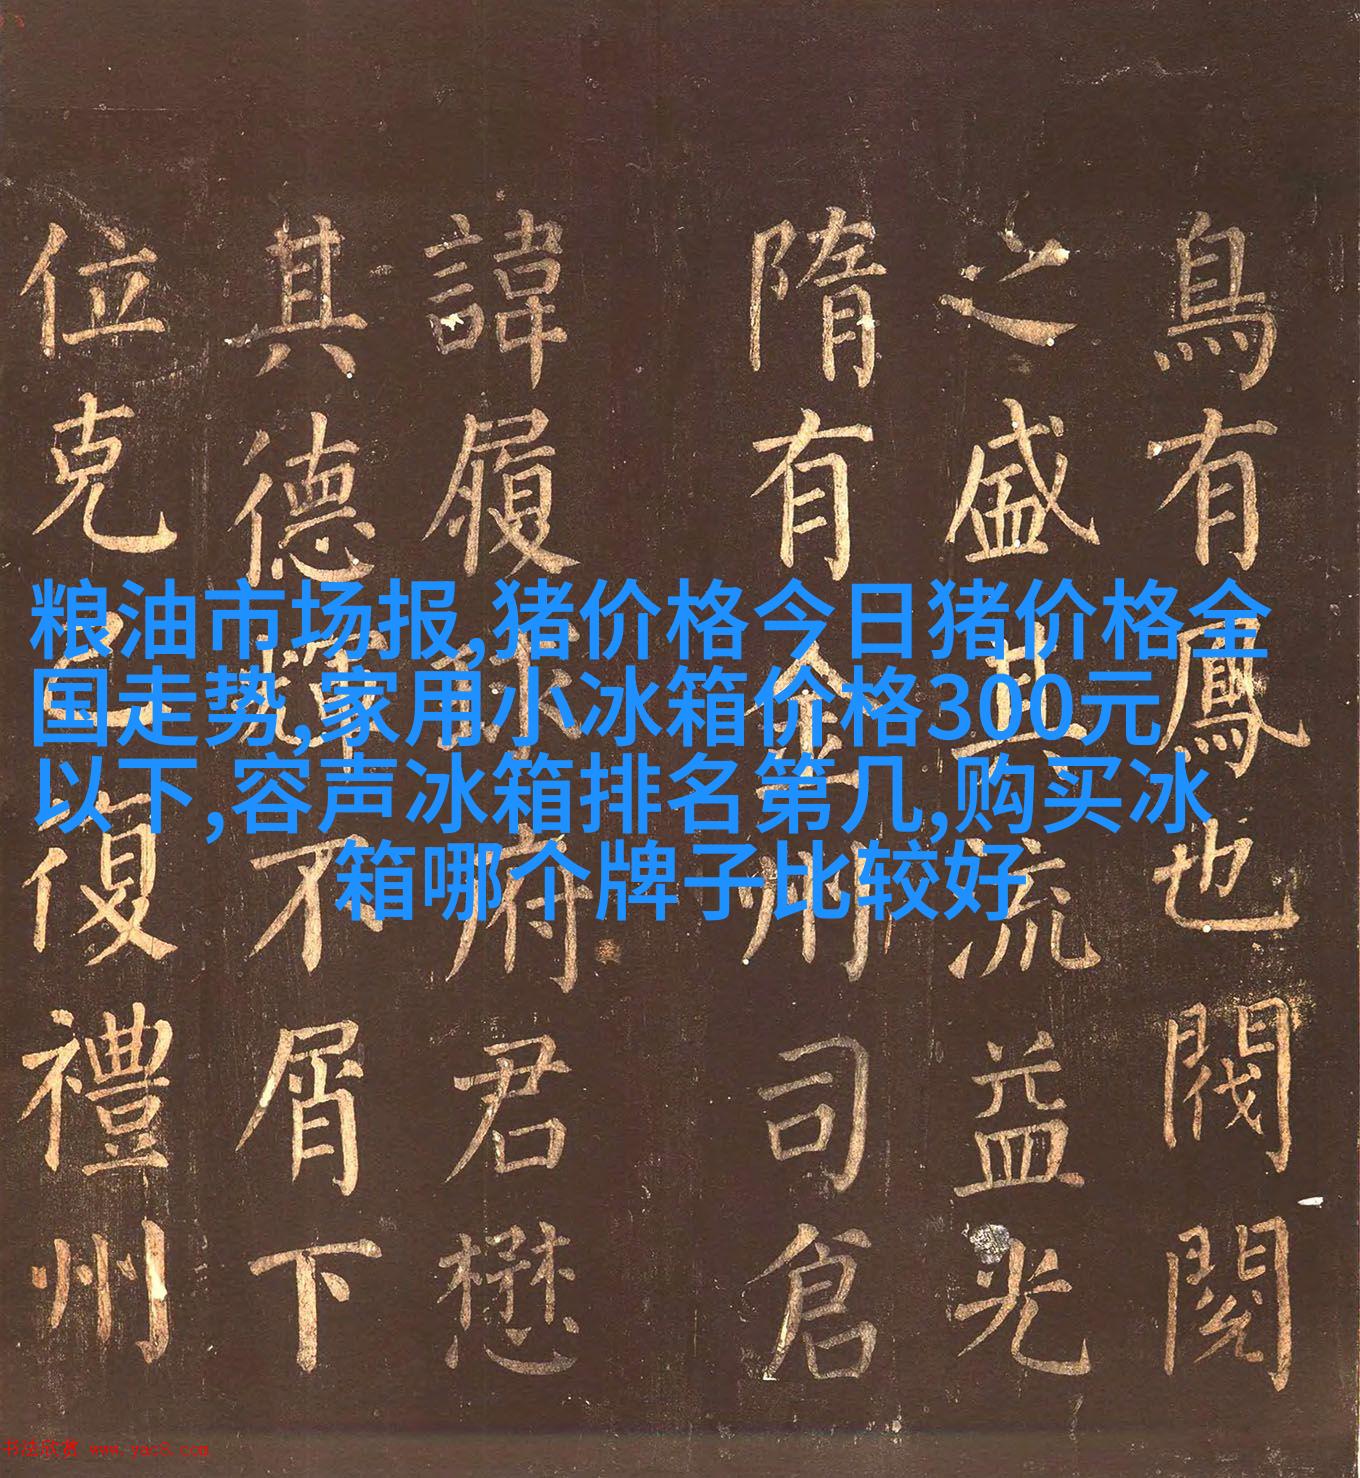 鳥有鳳也閥閱
之盛其流益光
隋有金州司倉
諱履府君懋
其德不屑下
位克己復禮州
粮油市场报,猪价格今日猪价格全
国走势,家用小冰箱价格300元
以下,容声冰箱排名第几,购买冰
箱哪个牌子比较好
书法欣赏 www.yac8.com